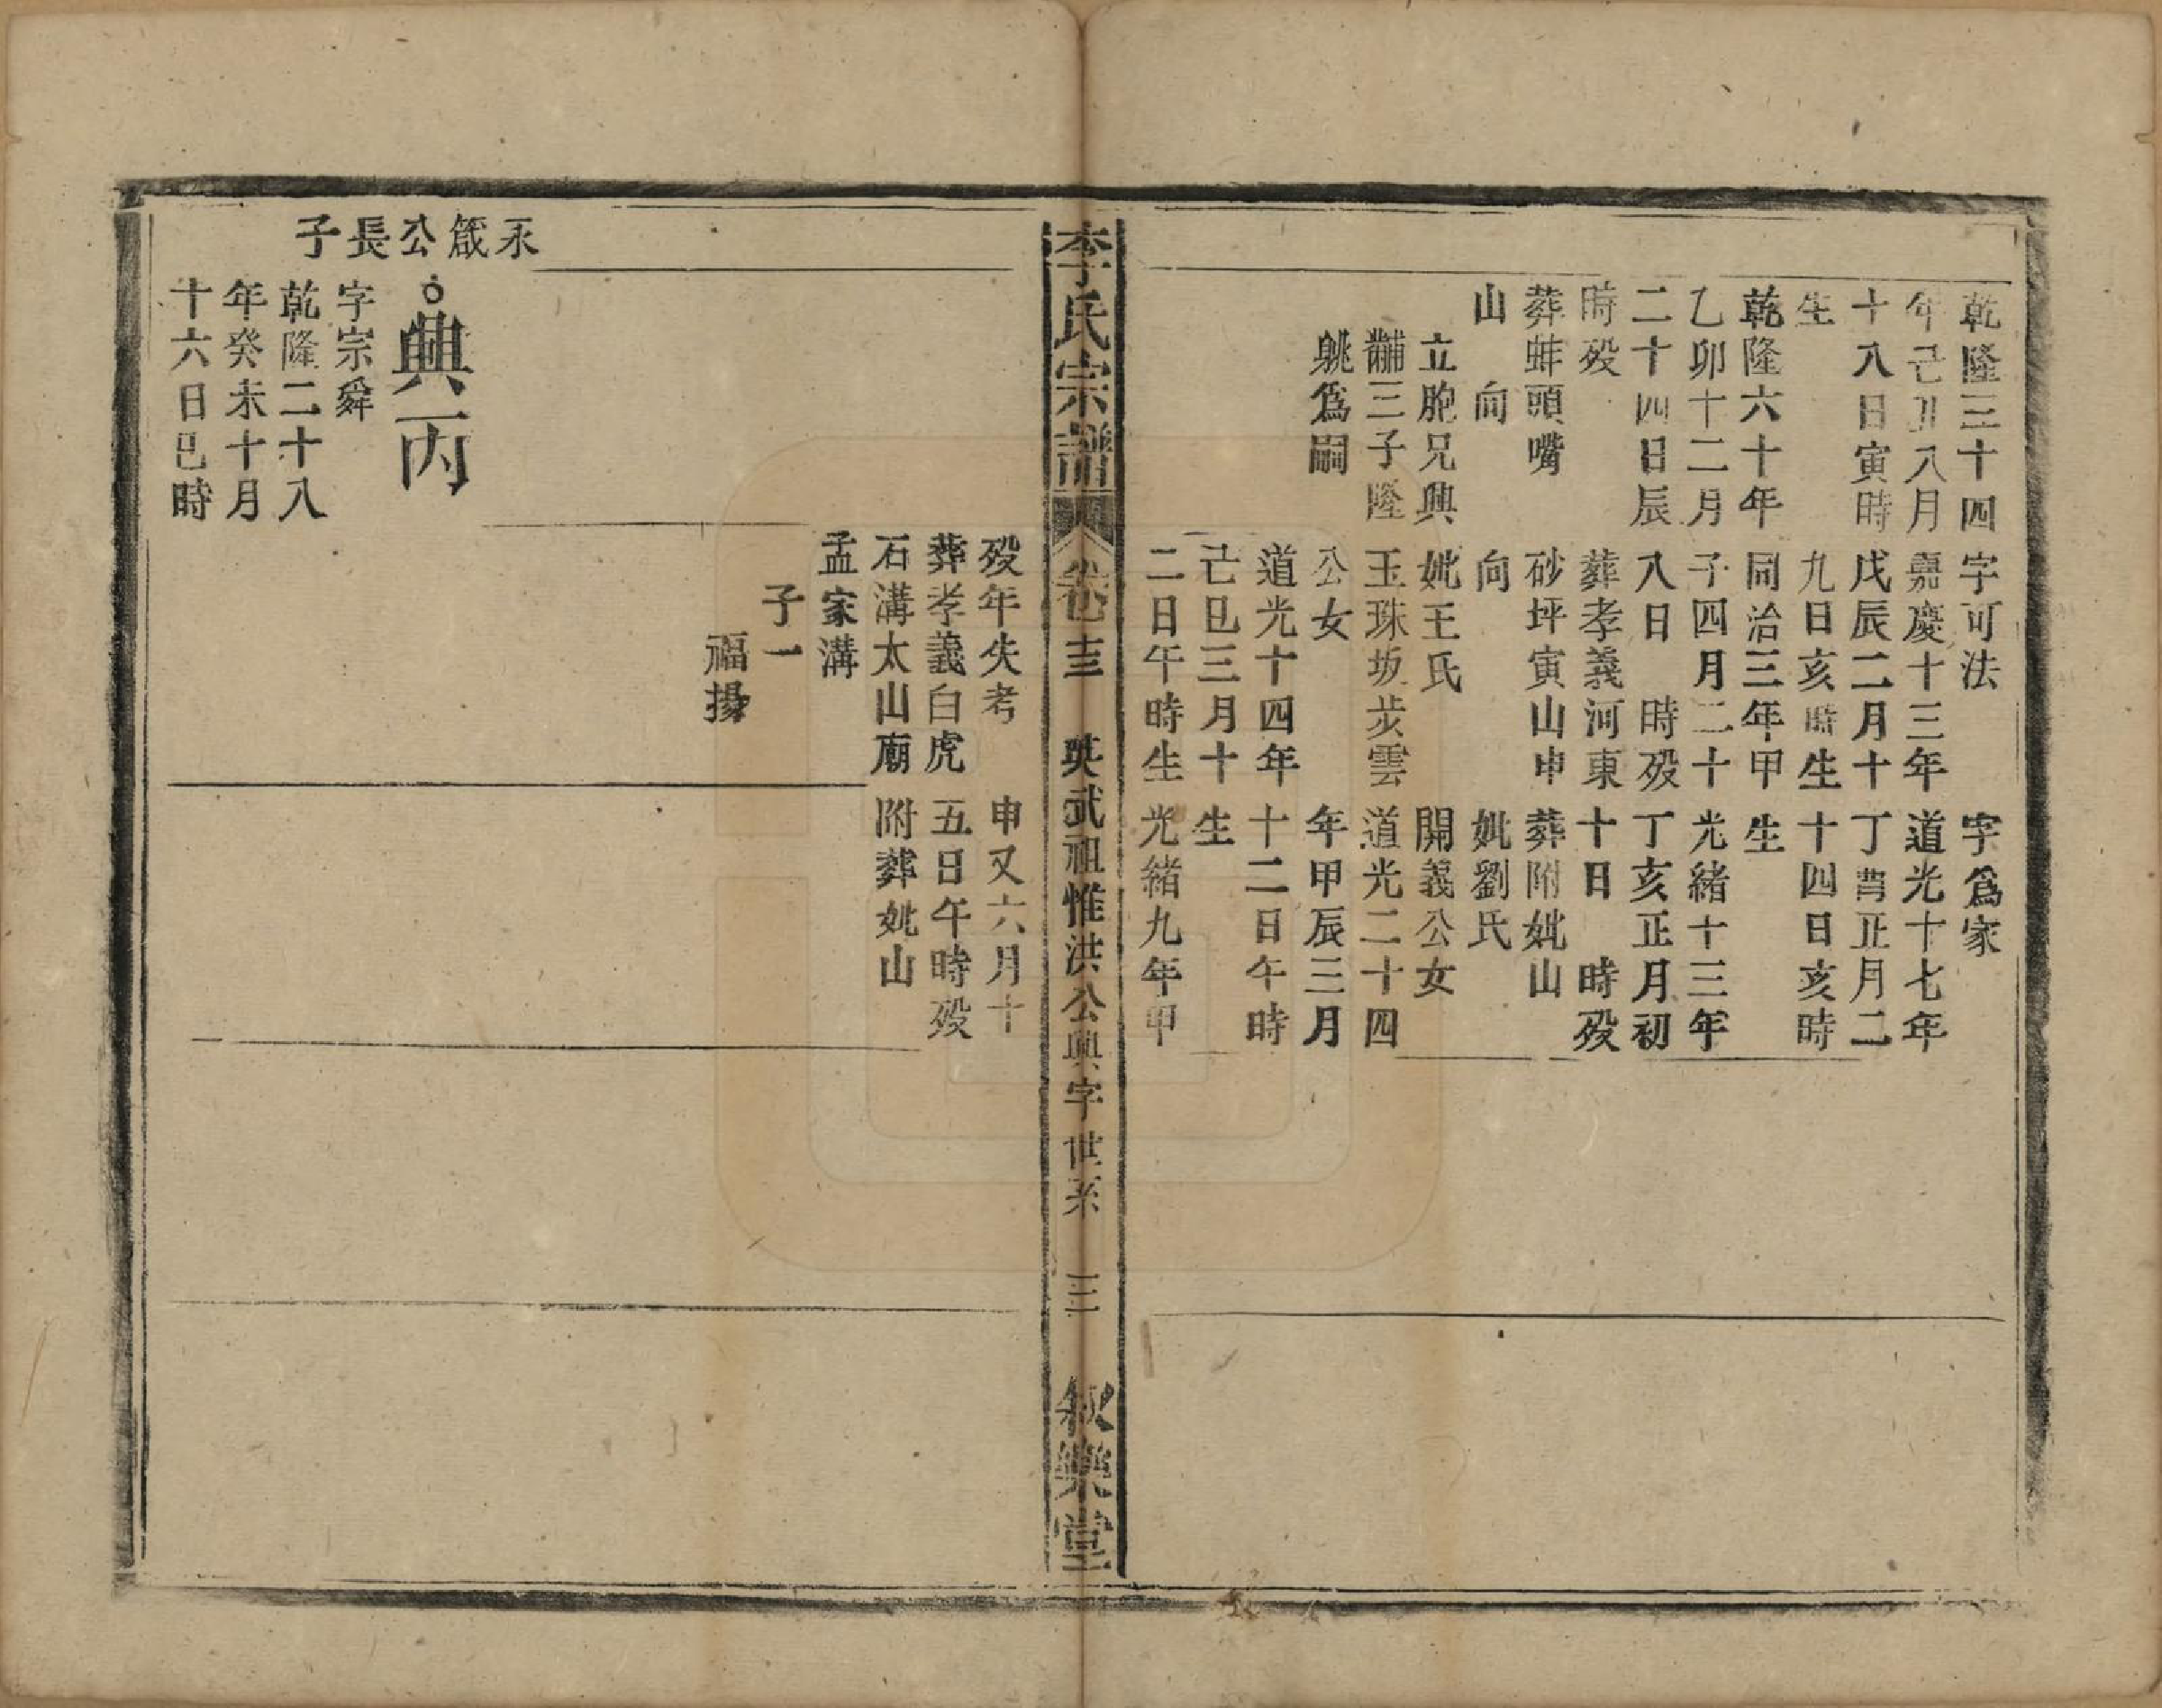 乾隆三十四
年己丑八月
十八日寅時
生
乾隆六十年
乙卯十二月
二十四日辰
時殁
葬蚌頭嘴
山　向
立胞兄興
黼三子隆
姚爲嗣
字可法
嘉慶十三年
戊辰二月十
九日亥時生
同治三年甲
子四月二十
八日　時殁
葬孝義河東
砂坪寅山申
向
妣王氏
玉珠坂步雲
公女
道光十四年
己巳三月十
二日午時生
字爲家
道光十七年
丁酉正月二
十四日亥時
生
光緒十三年
丁亥正月初
十日　時殁
葬附妣山
妣劉氏
開義公女
道光二十四
年甲辰三月
十二日午時
生
光緒九年甲
李氏宗譜　卷十三　英武祖惟洪公興字世系　三　叙樂堂
殁年失考
葬孝義白虎
石溝太山廟
孟家溝
子一
福揚
申又六月十
五日午時殁
附葬妣山
永箴公長子
興丙
字宗舜
乾隆二十八
年癸未十月
十六日巳時